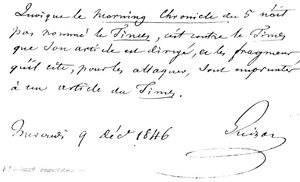 Quoique le Morning Chronicle du 5 n'ait
pas nommé le Times, c'est contre le Times
que son article est dirigé, et les fragmens
qu'il cite, pour les attaquer, sont empruntés
à un article du Times.
Mercredi 9 Déc. 1846
Guizot